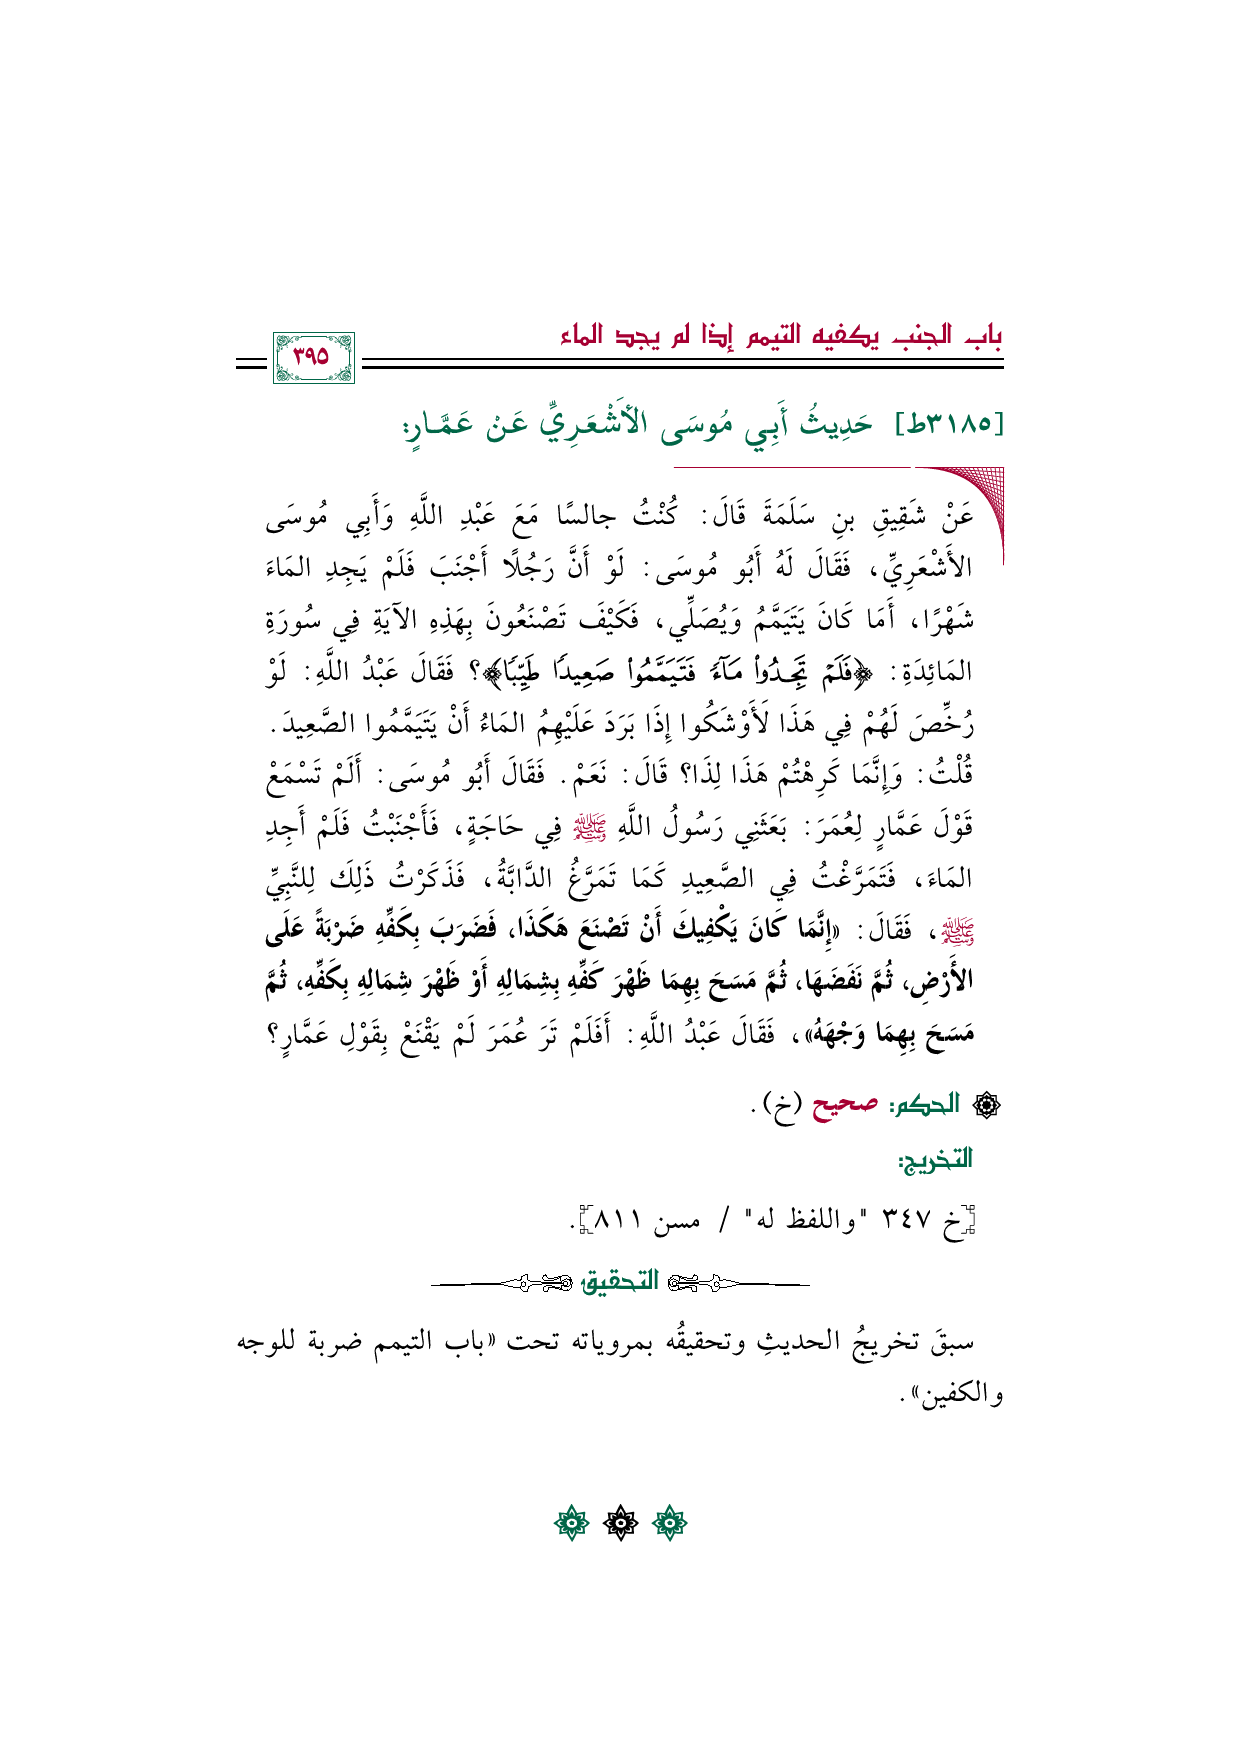 باب الجنب يكفيه التيمم إذا لم يجد الماء
٣٩٥
[٣١٨٥ط] حَدِيثُ أَبِي مُوسَى الأَشْعَرِيِّ عَنْ عَمَّارٍ:
عَنْ شَقِيقِ بنِ سَلَمَةَ قَالَ: كُنْتُ جالسًا مَعَ عَبْدِ اللَّهِ وَأَبِي مُوسَى
الأَشْعَرِيِّ، فَقَالَ لَهُ أَبُو مُوسَى: لَوْ أَنَّ رَجُلًا أَجْنَبَ فَلَمْ يَجِدِ المَاءَ
شَهْرًا، أَمَا كَانَ يَتَيَمَّمُ وَيُصَلِّي، فَكَيْفَ تَصْنَعُونَ بِهَذِهِ الآيَةِ فِي سُورَةِ
المَائِدَةِ: ﴿فَلَمۡ تَجِدُواْ مَآءٗ فَتَيَمَّمُواْ صَعِيدٗا طَيِّبٗا﴾؟ فَقَالَ عَبْدُ اللَّهِ: لَوْ
رُخِّصَ لَهُمْ فِي هَذَا لَأَوْشَكُوا إِذَا بَرَدَ عَلَيْهِمُ المَاءُ أَنْ يَتَيَمَّمُوا الصَّعِيدَ.
قُلْتُ: وَإِنَّمَا كَرِهْتُمْ هَذَا لِذَا؟ قَالَ: نَعَمْ. فَقَالَ أَبُو مُوسَى: أَلَمْ تَسْمَعْ
قَوْلَ عَمَّارٍ لِعُمَرَ: بَعَثَنِي رَسُولُ اللَّهِ ﷺ فِي حَاجَةٍ، فَأَجْنَبْتُ فَلَمْ أَجِدِ
المَاءَ، فَتَمَرَّغْتُ فِي الصَّعِيدِ كَمَا تَمَرَّغُ الدَّابَّةُ، فَذَكَرْتُ ذَلِكَ لِلنَّبِيِّ
ﷺ، فَقَالَ: «إِنَّمَا كَانَ يَكْفِيكَ أَنْ تَصْنَعَ هَكَذَا، فَضَرَبَ بِكَفِّهِ ضَرْبَةً عَلَى
الأَرْضِ، ثُمَّ نَفَضَهَا، ثُمَّ مَسَحَ بِهِمَا ظَهْرَ كَفِّهِ بِشِمَالِهِ أَوْ ظَهْرَ شِمَالِهِ بِكَفِّهِ، ثُمَّ
مَسَحَ بِهِمَا وَجْهَهُ»، فَقَالَ عَبْدُ اللَّهِ: أَفَلَمْ تَرَ عُمَرَ لَمْ يَقْنَعْ بِقَوْلِ عَمَّارٍ؟
الحكم: صحيح (خ).
التخريج:
[خ ٣٤٧ "واللفظ له" / مسن ٨١١].
التحقيق
سبقَ تخريجُ الحديثِ وتحقيقُه بمروياته تحت «باب التيمم ضربة للوجه
والكفين».